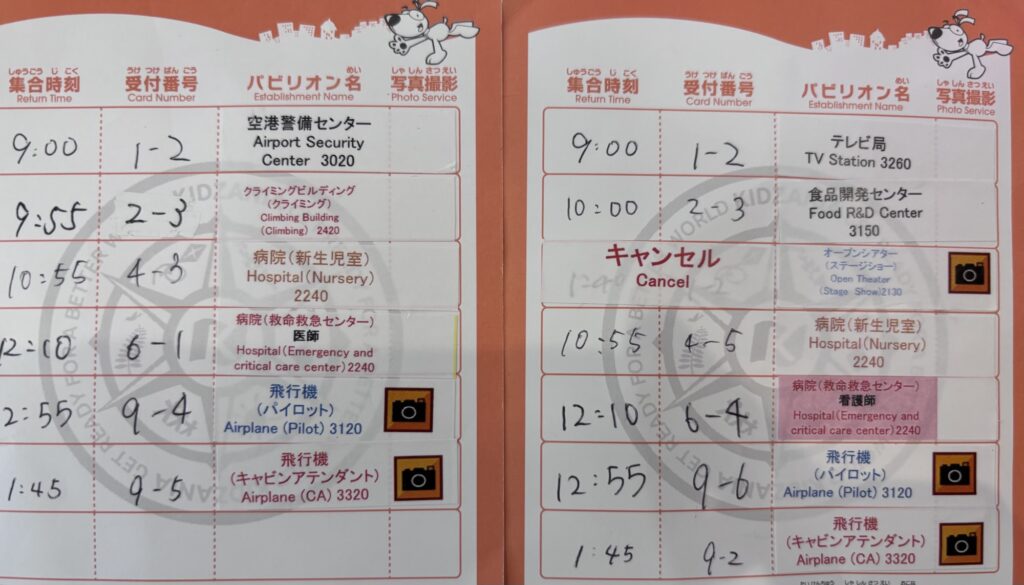 しゅうごうじこく うけつけばんごう めい しゃしんさつえい
集合時刻 受付番号 パビリオン名 写真撮影
Return Time Card Number Establishment Name Photo Service
9:00 1-2 空港警備センター
Airport Security
Center 3020
9:55 2-3 クライミングビルディング
(クライミング)
Climbing Building
(Climbing) 2420
10:55 4-3 病院(新生児室)
Hospital(Nursery)
2240
12:10 6-1 病院(救命救急センター)
医師
Hospital(Emergency and
critical care center)2240
2:55 9-4 飛行機
(パイロット)
Airplane (Pilot) 3120
1:45 9-5 飛行機
(キャビンアテンダント)
Airplane (CA) 3320
しゅうごうじこく うけつけばんごう めい しゃしんさつえい
集合時刻 受付番号 パビリオン名 写真撮影
Return Time Card Number Establishment Name Photo Service
9:00 1-2 テレビ局
TV Station 3260
10:00 2-3 食品開発センター
Food R&D Center
3150
キャンセル
Cancel
オープンシアター
(ステージショー)
Open Theater
(Stage Show)2130
10:55 4-5 病院(新生児室)
Hospital(Nursery)
2240
12:10 6-4 病院(救命救急センター)
看護師
Hospital(Emergency and
critical care center)2240
12:55 9-6 飛行機
(パイロット)
Airplane (Pilot) 3120
1:45 9-2 飛行機
(キャビンアテンダント)
Airplane (CA) 3320